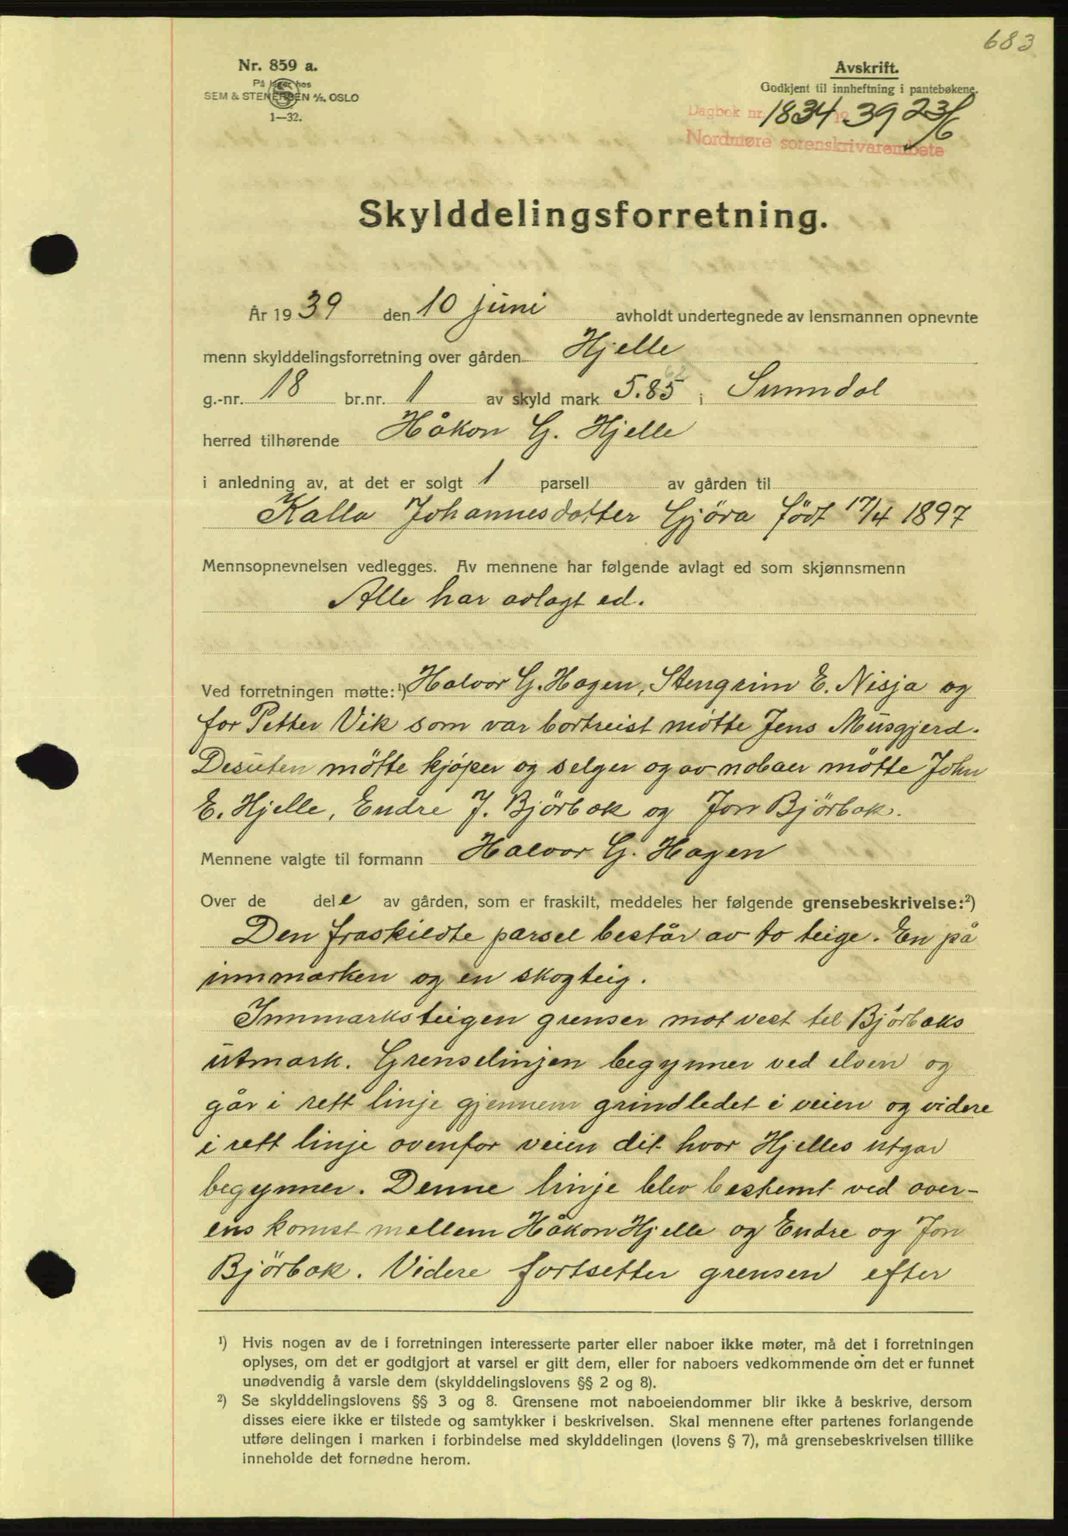 683
Nr. 859 a.
På lager hos
SEM & STENERSEN A/S, OSLO
1—32.
Avskrift.
Godkjent til innheftning i pantebøkene.
Dagbok nr. 1834 19 39 23/6
Nordmøre sorenskrivarembete
Skylddelingsforretning.
År 1939 den 10 juni avholdt undertegnede av lensmannen opnevnte
menn skylddelingsforretning over gården Hjelle
g.-nr. 18 br.nr. 1 av skyld mark 5.85 i Sunndal
herred tilhørende Håkon G. Hjelle
i anledning av, at det er solgt 1 parsell av gården til
Kalla Johannesdatter Gjöra födt 17/4 1897
Mennsopnevnelsen vedlegges. Av mennene har følgende avlagt ed som skjønnsmenn
Alle har avlagt ed.
Ved forretningen møtte:¹) Halvor G. Hagen, Stengrim E. Nisja og
for Petter Vik som var bortreist møtte Jens Musgjerd.
Desuten møtte kjøper og selger og av naboer møtte John
E. Hjelle, Endre J. Björbak og Jon Björbak.
Mennene valgte til formann Halvor G. Hagen
Over de dele av gården, som er fraskilt, meddeles her følgende grensebeskrivelse:²)
Den fraskildte parsel består av to teige. En på
innmarken og en skogteig.
Innmarksteigen grenser mot vest til Björbaks
utmark. Grenselinjen begynner ved elven og
går i rett linje gjennem grindledet i veien og videre
i rett linje ovenfor veien dit hvor Hjelles utgar
begynner. Denne linje blev bestemt ved over-
ens komst mellem Håkon Hjelle og Endre og Jon
Björbak. Videre fortsetter grensen efter
¹) Hvis nogen av de i forretningen interesserte parter eller naboer ikke møter, må det i forretningen
oplyses, om det er godtgjort at varsel er gitt dem, eller for naboers vedkommende om det er funnet
unødvendig å varsle dem (skylddelingslovens §§ 2 og 8).
²) Se skylddelingslovens §§ 3 og 8. Grensene mot naboeiendommer blir ikke å beskrive, dersom
disses eiere ikke er tilstede og samtykker i beskrivelsen. Skal mennene efter partenes forlangende
utføre delingen i marken i forbindelse med skylddelingen (lovens § 7), må grensebeskrivelsen tillike
inneholde det fornødne herom.